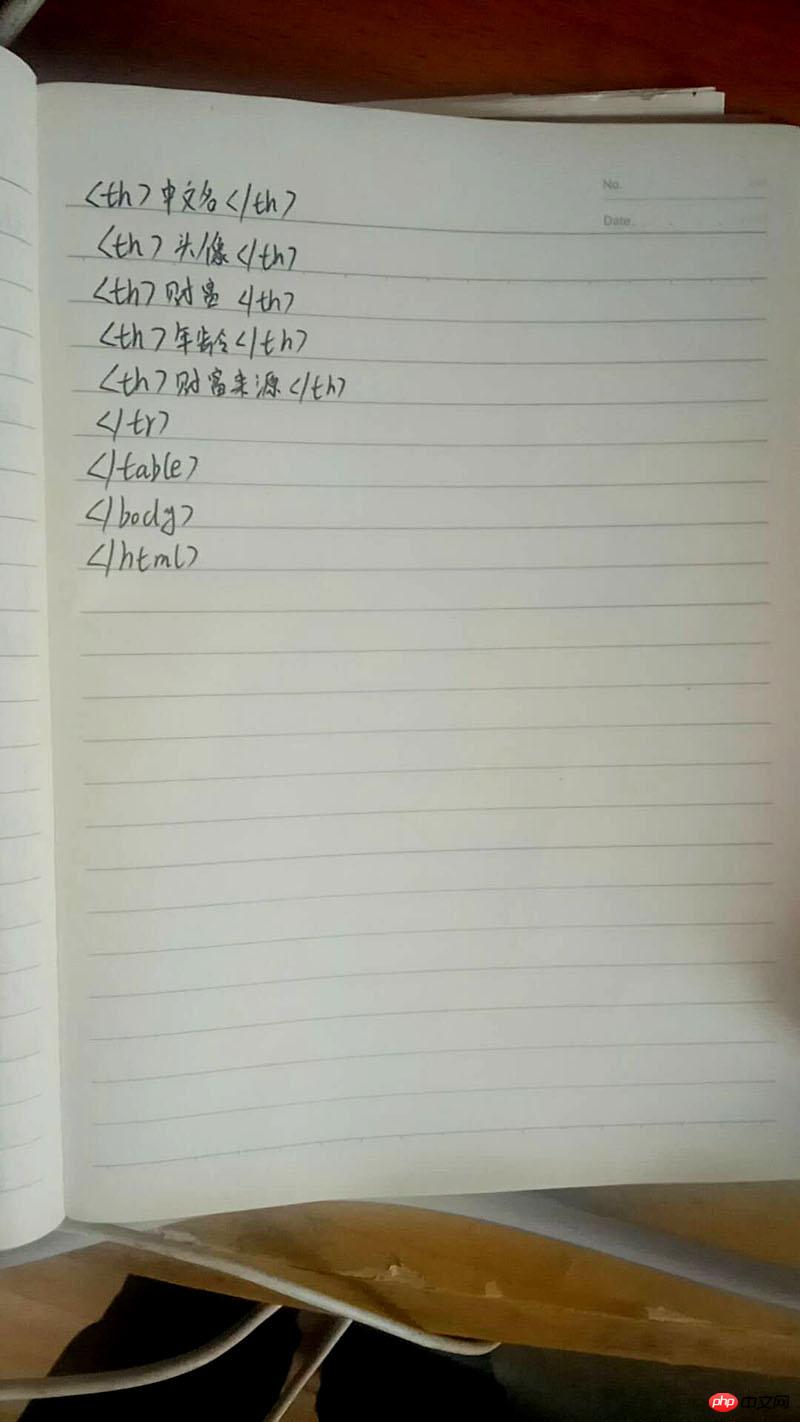 No.
Date.
<th>中文名</th>
<th>头像</th>
<th>财富</th>
<th>年龄</th>
<th>财富来源</th>
</tr>
</table>
</body>
</html>
php中文网